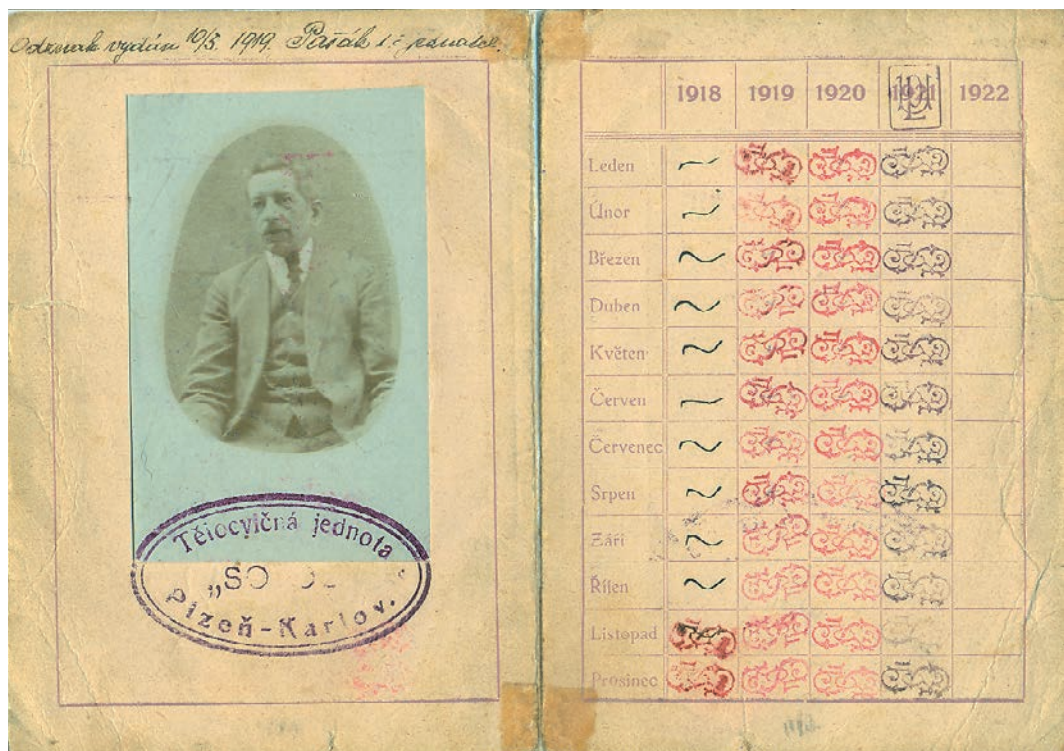 Odznak vydán 10/5. 1919. Pašák t.č. jednatel.
Tělocvičná jednota
„SO OL
Plzeň-Karlov.
1918 1919 1920 1921 1922
Leden
Únor
Březen
Duben
Květen
Červen
Červenec
Srpen
Září
Říjen
Listopad
Prosinec